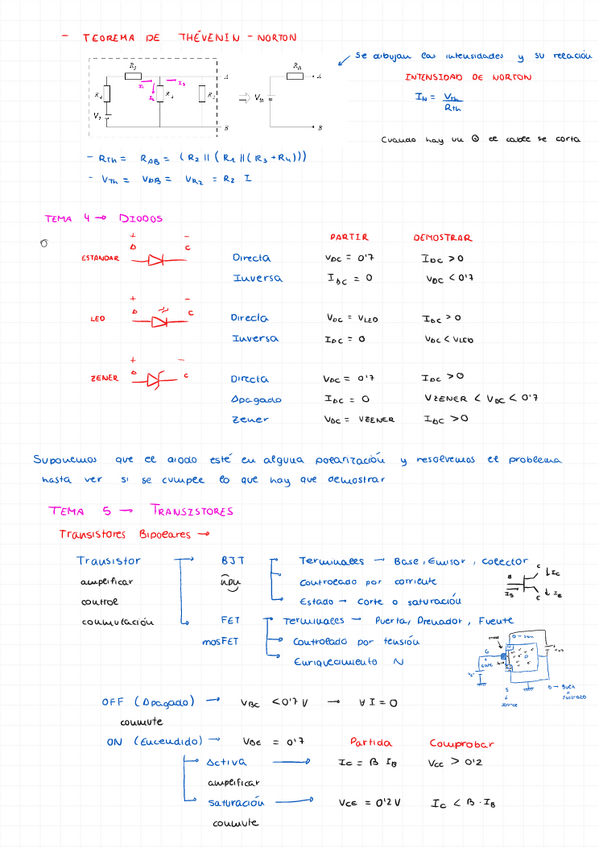 - TEOREMA DE THÉVENIN - NORTON
Se dibujan las intensidades y su relación
INTENSIDAD DE NORTON
IN = VTh / RTh
Cuando hay un ⊙ el cable se corta
- RTH = RAB = (R2 || (R1 || (R3 + R4)))
- VTh = VAB = VR2 = R2 I
TEMA 4 → DIODOS
PARTIR DEMOSTRAR
ESTANDAR Directa VDC = 0'7 IDC > 0
Inversa IDC = 0 VDC < 0'7
LED Directa VDC = VLED IDC > 0
Inversa IDC = 0 VDC < VLED
ZENER Directa VDC = 0'7 IDC > 0
Apagado IDC = 0 VZENER < VDC < 0'7
Zener VDC = VZENER IDC > 0
Suponemos que el diodo esté en alguna polarización y resolvemos el problema
hasta ver si se cumple lo que hay que demostrar
TEMA 5 → TRANSISTORES
Transistores Bipolares →
Transistor BJT Terminales → Base, Emisor, Colector
amplificar npn Controlado por corriente
control Estado → Corte o saturación
conmutación FET Terminales → Puerta, Drenador, Fuente
mosFET Controlado por tensión
Enriquecimiento N
OFF (Apagado) → VBE < 0'7 V → ∀ I = 0
conmute
ON (Encendido) → VBE = 0'7 Partida Comprobar
Activa → IC = β IB VCE > 0'2
amplificar
saturación → VCE = 0'2 V IC < β · IB
conmute